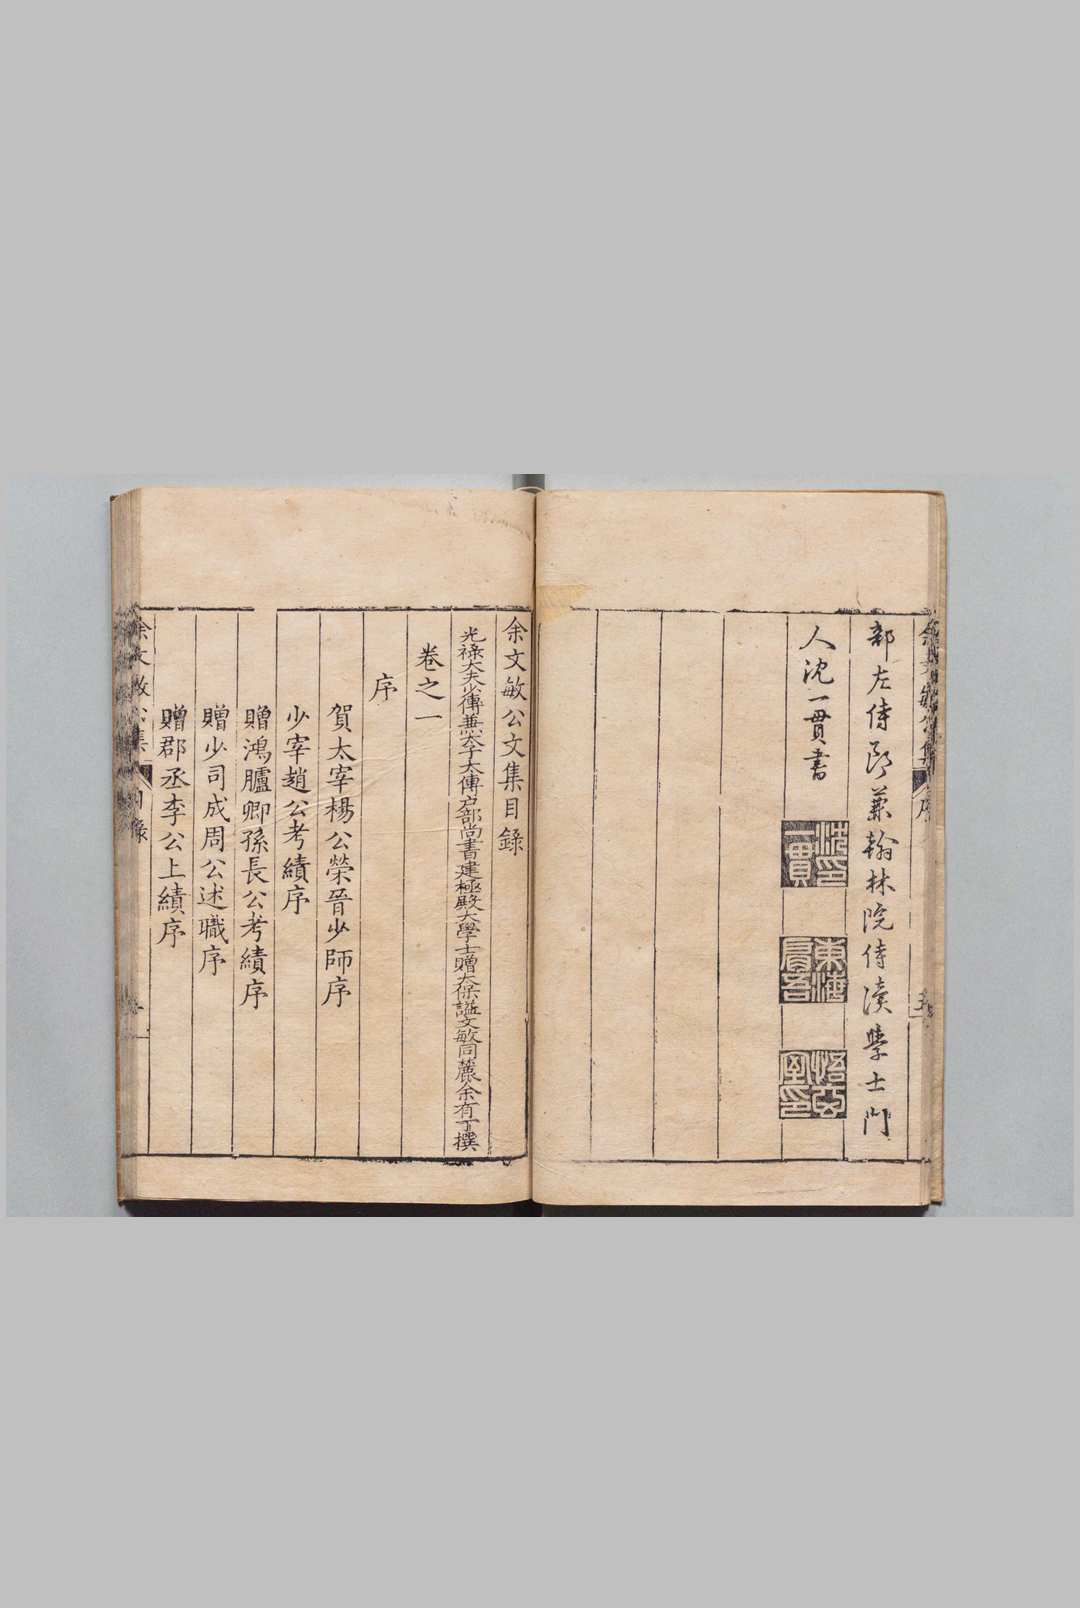 部左侍郎兼翰林院侍讀學士門
人沈一貫書
沈一貫印
東海肩吾
余文敏公文集目錄
光祿大夫少傅兼太子太傅户部尚書建極殿大學士贈太保謚文敏同麓余有丁撰
卷之一
序
賀太宰楊公榮晉少師序
少宰趙公考績序
贈鴻臚卿孫長公考績序
贈少司成周公述職序
贈郡丞李公上績序
余文敏公集
目錄